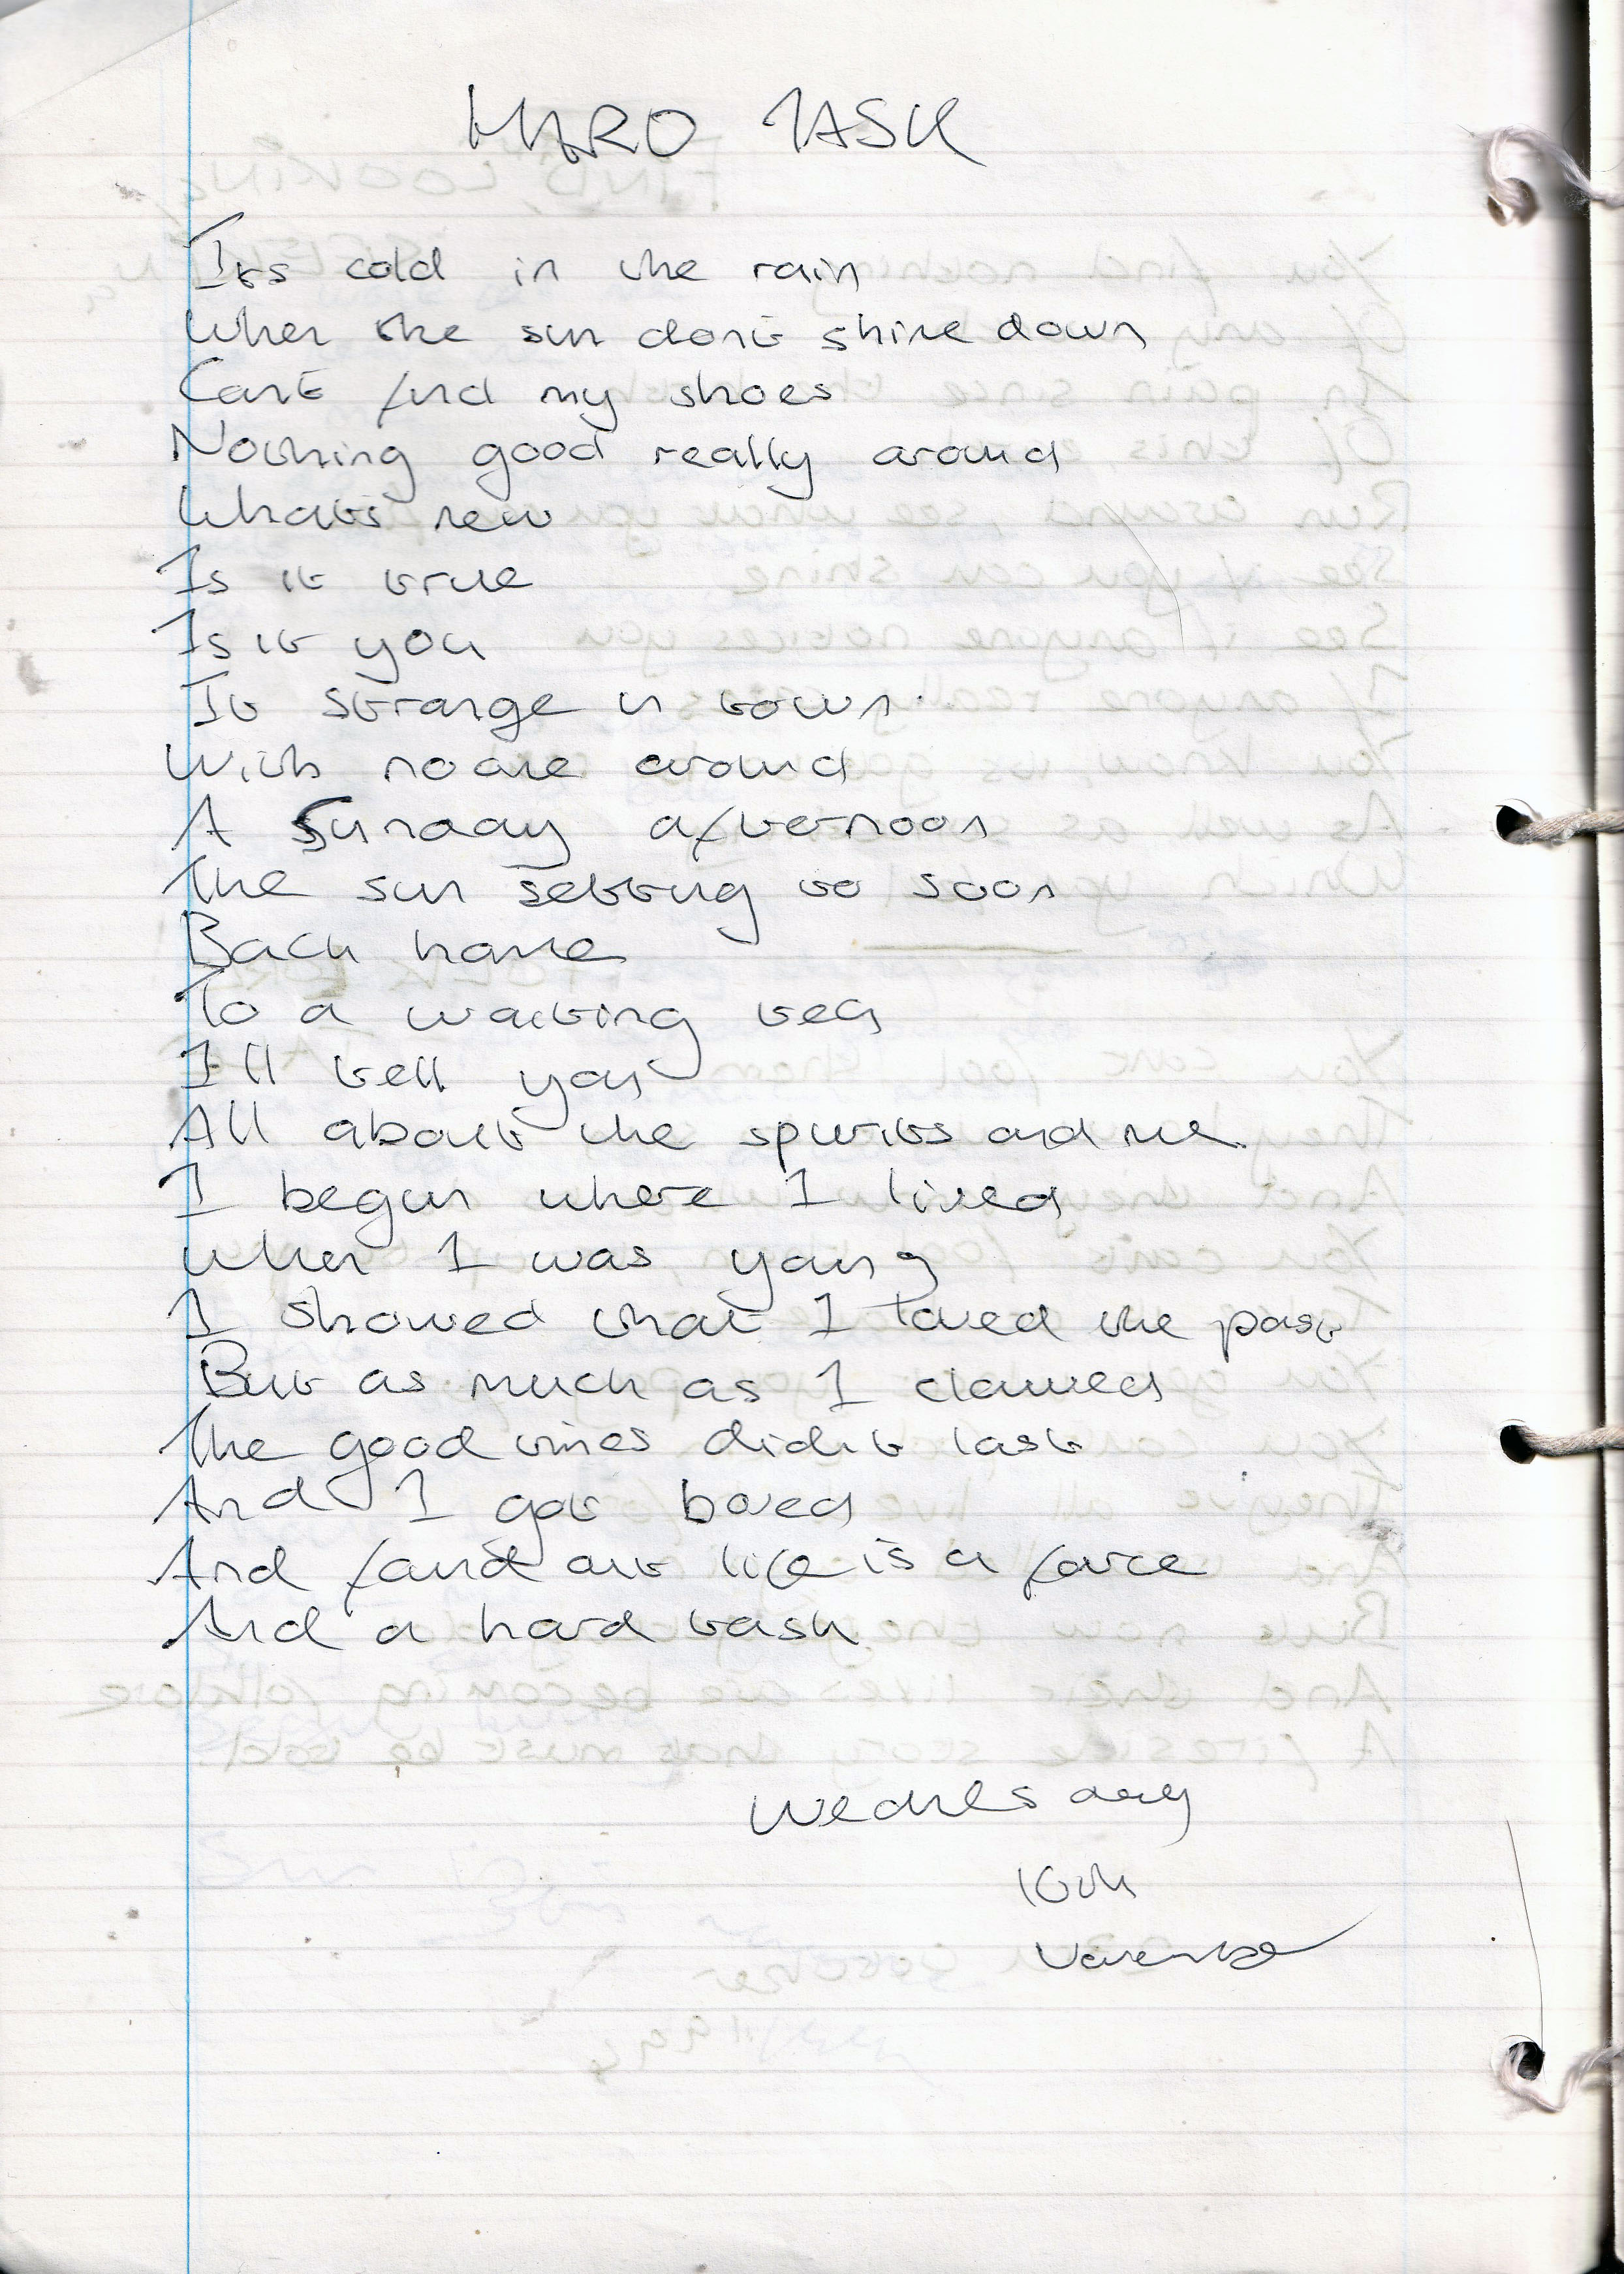 HARD TASK
Its cold in the rain
When the sun dont shine down
Cant find my shoes
Nothing good really around
Whats new
Is it true
Is it you
It strange in town
With noone around
A Sunday afternoon
The sun setting to soon
Back home
To a waiting bed
I'll tell you
All about the spirits and me
I begun where I lived
When I was young
I showed that I loved the past
But as much as I clawed
The good times didnt last
And I got bored
And found out life is a farce
And a hard task
Wednesday
10th
November